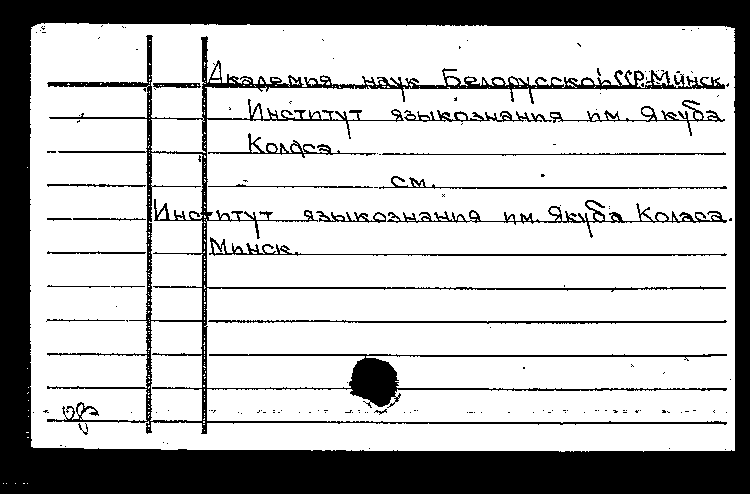 Академия наук Белорусской ССР. Минск.
Институт языкознания им. Якуба
Коласа.
см.
Институт языкознания им. Якуба Коласа.
Минск.